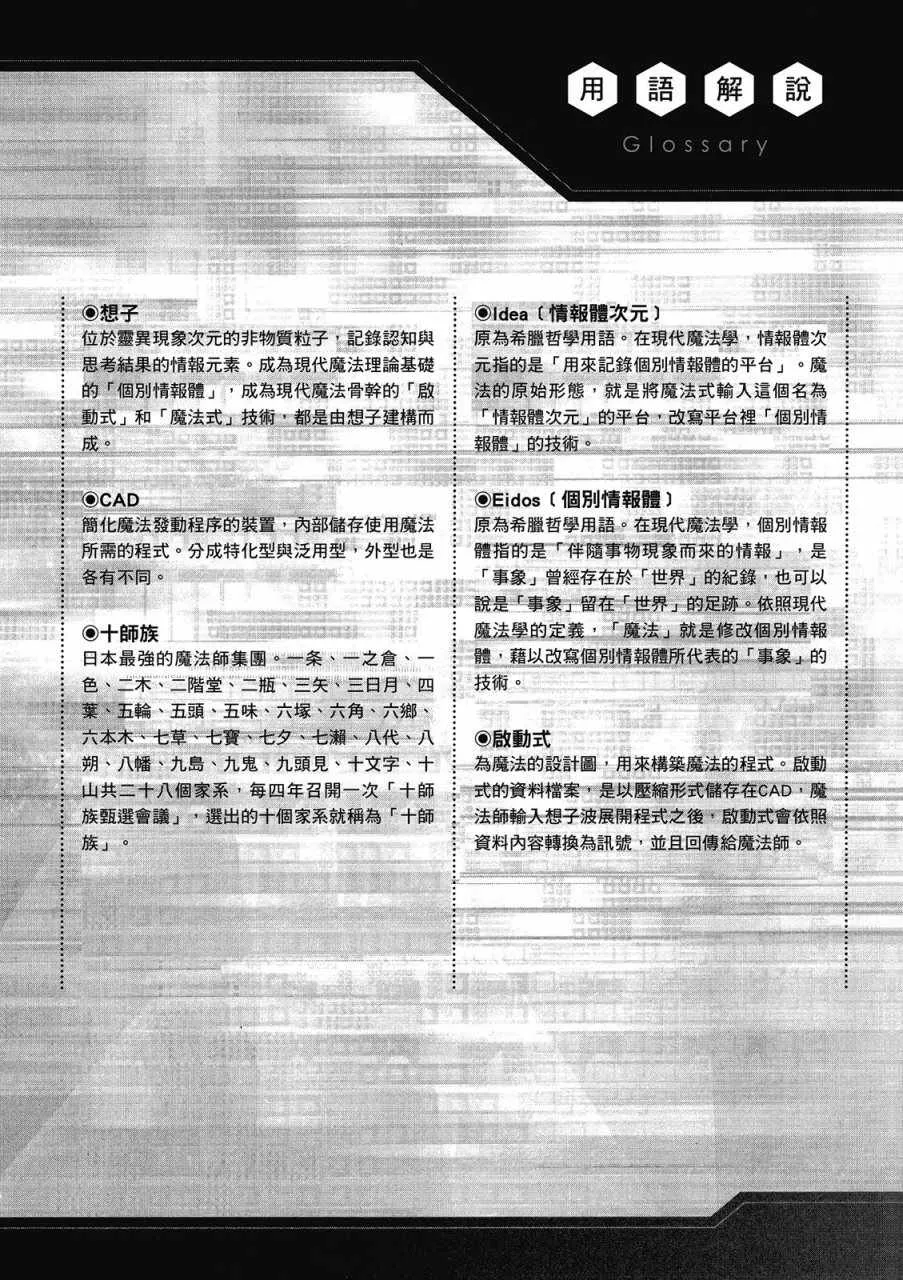 用語解說
Glossary
◉想子
位於靈異現象次元的非物質粒子，記錄認知與
思考結果的情報元素。成為現代魔法理論基礎
的「個別情報體」，成為現代魔法骨幹的「啟
動式」和「魔法式」技術，都是由想子建構而
成。
◉CAD
簡化魔法發動程序的裝置，內部儲存使用魔法
所需的程式。分成特化型與泛用型，外型也是
各有不同。
◉十師族
日本最強的魔法師集團。一条、一之倉、一
色、二木、二階堂、二瓶、三矢、三日月、四
葉、五輪、五頭、五味、六塚、六角、六鄉、
六本木、七草、七寶、七夕、七瀨、八代、八
朔、八幡、九島、九鬼、九頭見、十文字、十
山共二十八個家系，每四年召開一次「十師
族甄選會議」，選出的十個家系就稱為「十師
族」。
◉Idea﹝情報體次元﹞
原為希臘哲學用語。在現代魔法學，情報體次
元指的是「用來記錄個別情報體的平台」。魔
法的原始形態，就是將魔法式輸入這個名為
「情報體次元」的平台，改寫平台裡「個別情
報體」的技術。
◉Eidos﹝個別情報體﹞
原為希臘哲學用語。在現代魔法學，個別情報
體指的是「伴隨事物現象而來的情報」，是
「事象」曾經存在於「世界」的紀錄，也可以
說是「事象」留在「世界」的足跡。依照現代
魔法學的定義，「魔法」就是修改個別情報
體，藉以改寫個別情報體所代表的「事象」的
技術。
◉啟動式
為魔法的設計圖，用來構築魔法的程式。啟動
式的資料檔案，是以壓縮形式儲存在CAD，魔
法師輸入想子波展開程式之後，啟動式會依照
資料內容轉換為訊號，並且回傳給魔法師。